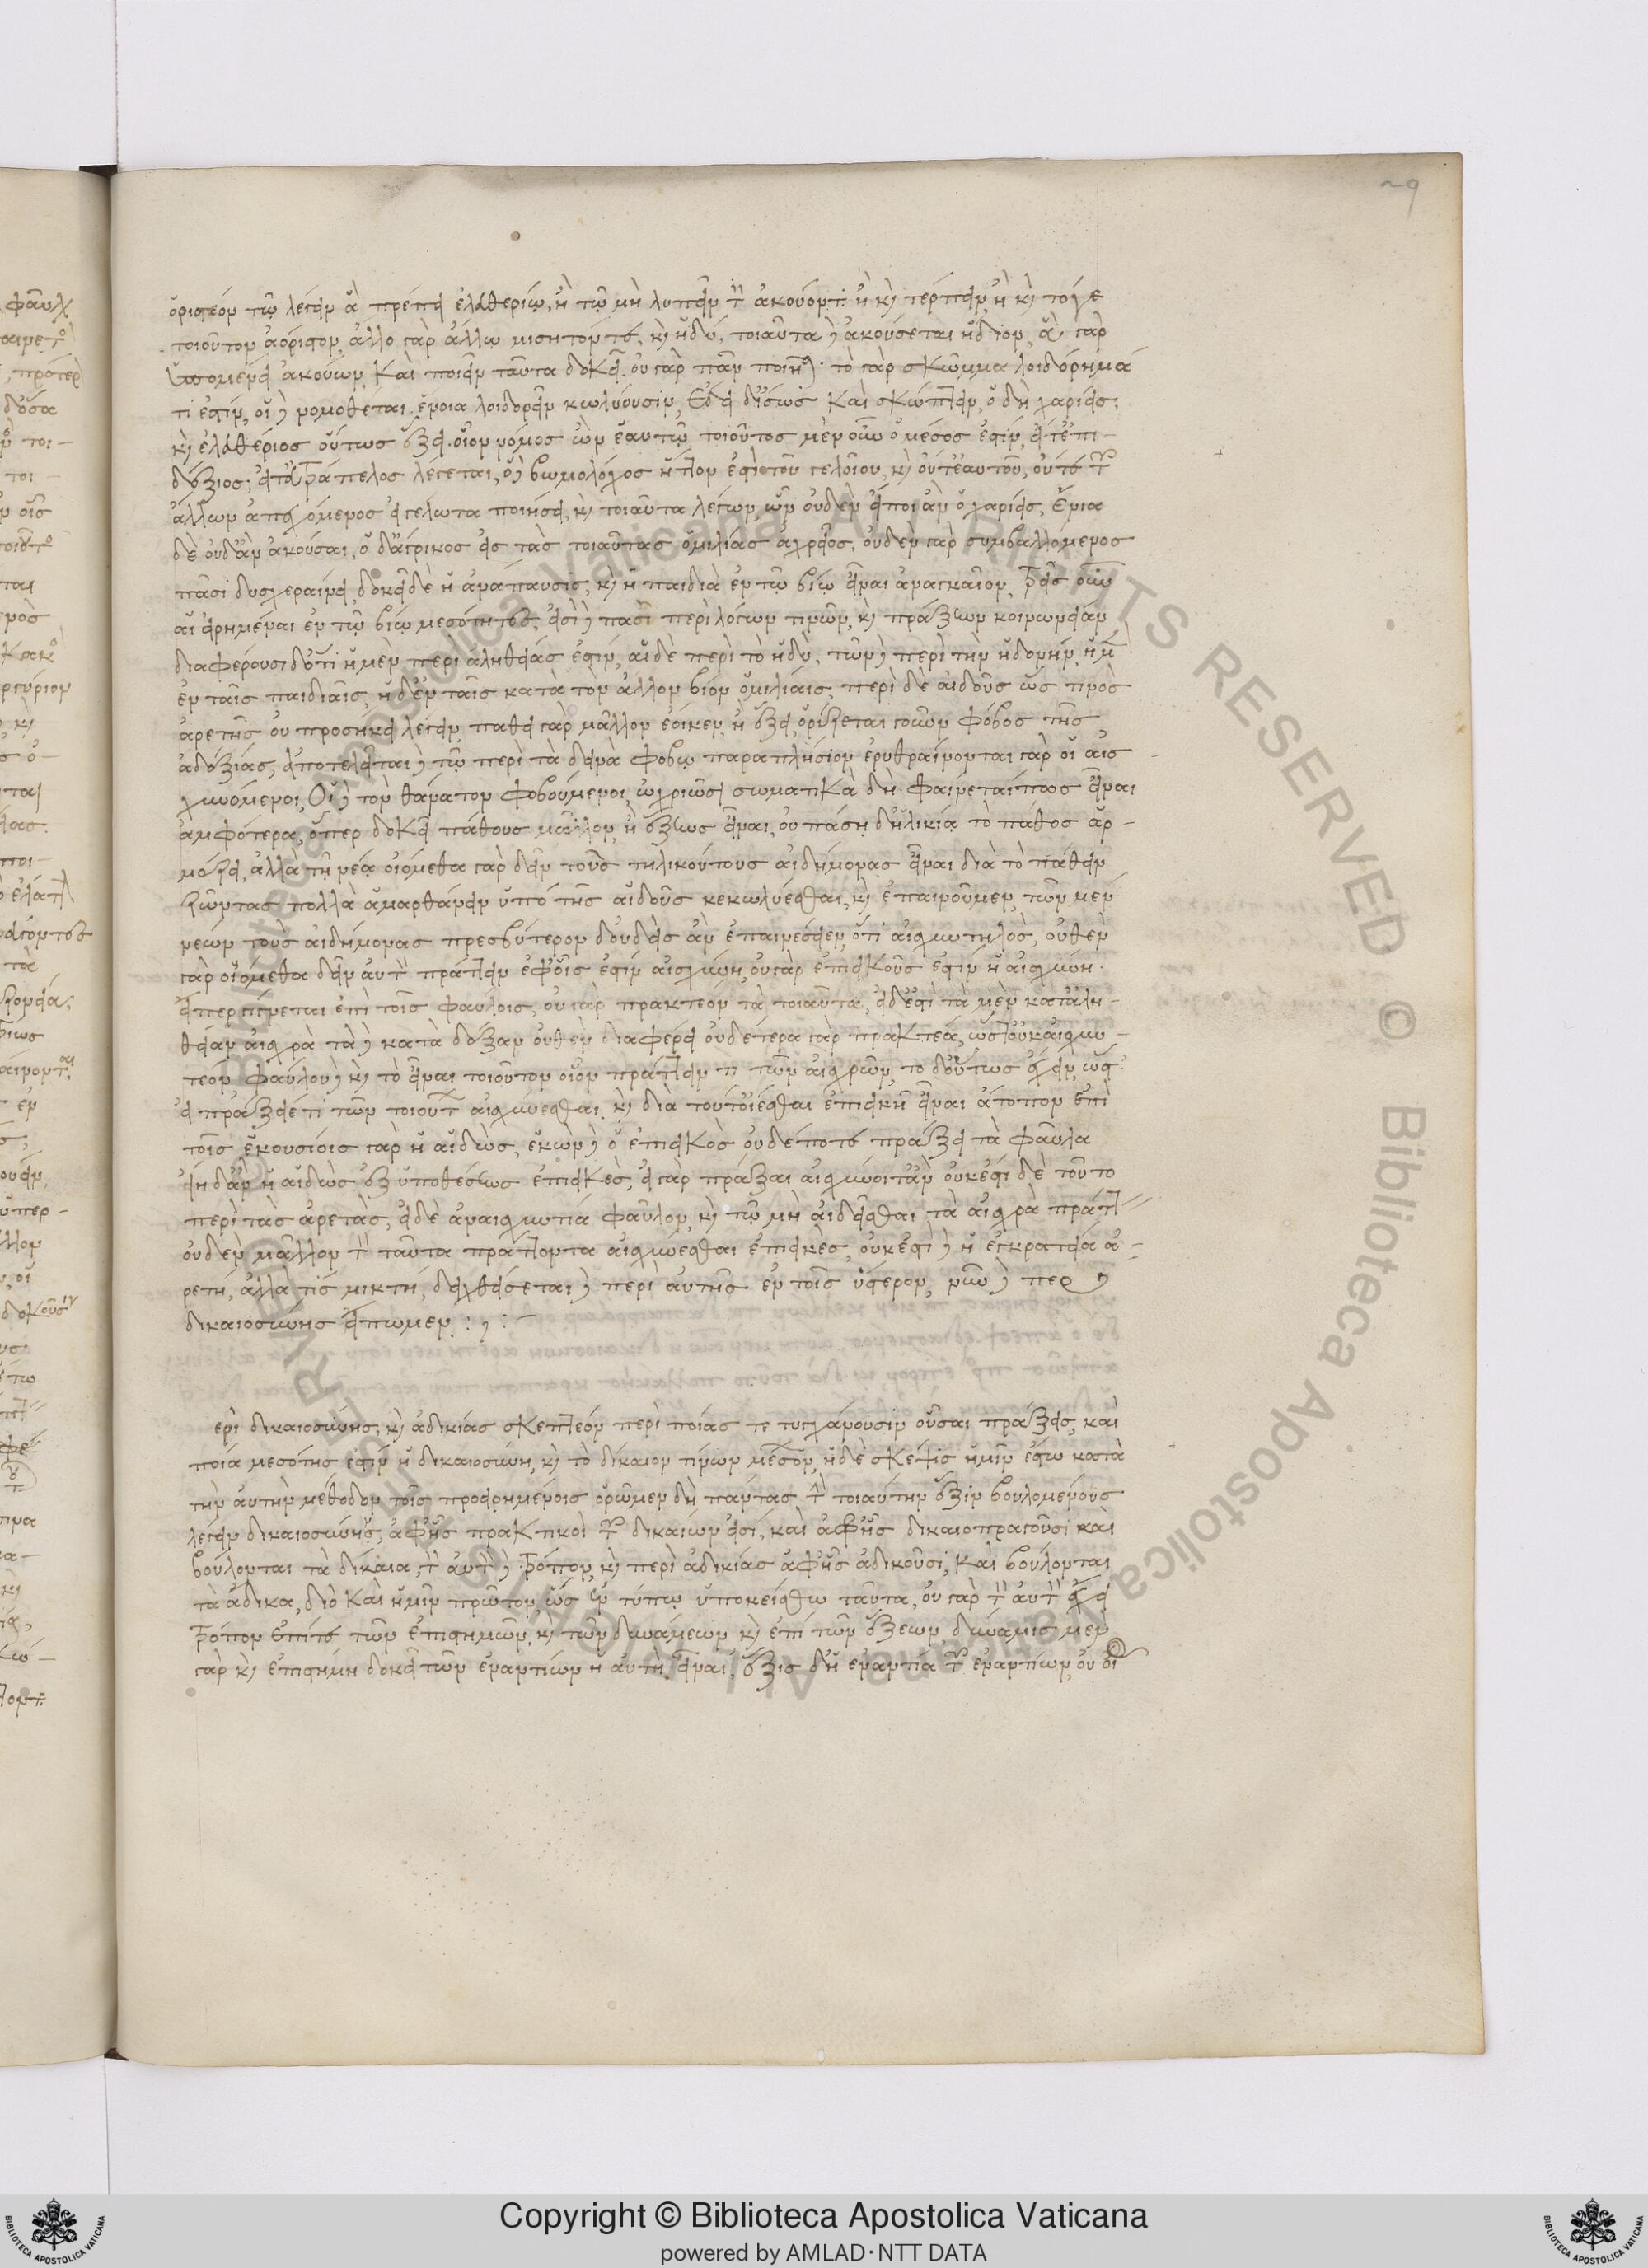 29
ὁριστέον τῷ λέγειν ἃ πρέπει ἐλευθερίῳ, ἢ τῷ μὴ λυπεῖν τὸν ἀκούοντα. ἢ καὶ τέρπειν, ἢ καὶ τό γε
τοιοῦτον ἀόριστον, ἄλλο γὰρ ἄλλῳ μισητόν τε, καὶ ἡδύ, τοιαῦτα δὲ ἀκούσεται ἥδιον, ἃ γὰρ
ὑπομένει ἀκούων, καὶ ποιεῖν ταῦτα δοκεῖ. οὐ γὰρ πᾶν ποιήσει. τὸ γὰρ σκῶμμα λοιδόρημά
τι ἐστίν, οἱ δὲ νομοθέται ἔνοια λοιδορεῖν κωλύουσιν, ἔδει δ' ἴσως καὶ σκώπτειν, ὁ δὴ χαρίεις,
καὶ ἐλευθέριος οὕτως ἕξει. οἷον νόμος ὢν ἑαυτῷ τοιοῦτος μὲν οὖν ὁ μέσος ἐστίν, εἴτ' ἐπι-
δέξιος, εἴτ' εὐτράπελος λέγεται, ὁ δὲ βωμολόχος ἥττον ἐστὶ τοῦ γελοίου, καὶ οὔτε ἑαυτοῦ, οὔτε τῶν
ἄλλων ἀπεχόμενος εἰ γέλωτα ποιήσει, καὶ τοιαῦτα λέγων, ὧν οὐδὲν εἴποι ἂν ὁ χαρίεις, ἔνια
δὲ οὐδ' ἂν ἀκούσαι, ὁ δ' ἄγροικος εἰς τὰς τοιαύτας ὁμιλίας ἀχρεῖος, οὐδὲν γὰρ συμβαλλόμενος
πᾶσι δυσχεραίνει, δοκεῖ δὲ ἡ ἀνάπαυσις, καὶ ἡ παιδιὰ ἐν τῷ βίῳ εἶναι ἀναγκαῖον, τρεῖς οὖν
αἱ εἰρημέναι ἐν τῷ βίῳ μεσότητες, εἰσὶ δὲ πᾶσι περὶ λόγων τινῶν, καὶ πράξεων κοινωνίαν
διαφέρουσι δ' ὅτι ἡ μὲν περὶ ἀλήθειάν ἐστιν, αἱ δὲ περὶ τὸ ἡδύ, τῶν δὲ περὶ τὴν ἡδονήν, ἡ μὲν
ἐν ταῖς παιδιαῖς, ἡ δ' ἐν ταῖς κατὰ τὸν ἄλλον βίον ὁμιλίαις, περὶ δὲ αἰδοῦς ὥς τινος
ἀρετῆς οὐ προσήκει λέγειν, πάθει γὰρ μᾶλλον ἔοικεν, ἢ ἕξει, ὁρίζεται γοῦν φόβος τῆς
ἀδοξίας, ἀποτελεῖται δὲ τῷ περὶ τὰ δεινὰ φόβῳ παραπλήσιον, ἐρυθραίνονται γὰρ οἱ αἰσ-
χυνόμενοι, οἱ δὲ τὸν θάνατον φοβούμενοι, ὠχριῶσι, σωματικὰ δὴ φαίνεταί πως εἶναι
ἀμφότερα, ὅπερ δοκεῖ πάθους μᾶλλον, ἢ ἕξεως εἶναι, οὐ πάσῃ δ' ἡλικίᾳ τὸ πάθος ἁρ-
μόζει, ἀλλὰ τῇ νέᾳ, οἰόμεθα γὰρ δεῖν τοὺς τηλικούτους αἰδήμονας εἶναι διὰ τὸ πάθει
ζῶντας πολλὰ ἁμαρτάνειν ὑπὸ τῆς αἰδοῦς κεκωλύεσθαι, καὶ ἐπαινοῦμεν τῶν μὲν
νέων τοὺς αἰδήμονας πρεσβύτερον δ' οὐδεὶς ἂν ἐπαινέσειεν, ὅτι αἰσχυντηλός, οὐθὲν
γὰρ οἰόμεθα δεῖν αὐτὸν πράττειν ἐφ' οἷς ἐστὶν αἰσχύνη, οὐ γὰρ ἐπιεικοῦς ἐστὶν ἡ αἰσχύνη.
εἴπερ γίνεται ἐπὶ τοῖς φαύλοις, οὐ γὰρ πρακτέον τὰ τοιαῦτα, εἰ δ' ἐστὶ τὰ μὲν κατ' ἀλή-
θειαν αἰσχρὰ τὰ δὲ κατὰ δόξαν οὐθὲν διαφέρει οὐδέτερα γὰρ πρακτέα, ὥστ' οὐκ αἰσχυν-
τέον φαύλου δὲ καὶ τὸ εἶναι τοιοῦτον οἷον πράττειν τι τῶν αἰσχρῶν, τὸ δ' οὕτως ἔχειν, ὥστ'
εἰ πράξειέ τι τῶν τοιούτων αἰσχύνεσθαι, καὶ διὰ τοῦτ' οἴεσθαι ἐπιεικῆ εἶναι ἄτοπον ἐπὶ
τοῖς ἑκουσίοις γὰρ ἡ αἰδώς, ἑκὼν δὲ ὁ ἐπιεικὴς οὐδέποτε πράξει τὰ φαῦλα
εἴη δ' ἂν ἡ αἰδὼς ἐξ ὑποθέσεως ἐπιεικές, εἰ γὰρ πράξαι αἰσχύνοιτ' ἂν οὐκ ἔστι δὲ τοῦτο
περὶ τὰς ἀρετάς, εἰ δὲ ἀναισχυντία φαῦλον, καὶ τὸ μὴ αἰδεῖσθαι τὰ αἰσχρὰ πράττειν
οὐδὲν μᾶλλον τὸν ταῦτα πράττοντα αἰσχύνεσθαι ἐπιεικές, οὐκ ἔστι δὲ ἡ ἐγκράτεια ἀ-
ρετή, ἀλλά τις μικτή, δειχθήσεται δὲ περὶ αὐτῆς ἐν τοῖς ὕστερον, νῦν δὲ περὶ
δικαιοσύνης εἴπωμεν :
ερὶ δικαιοσύνης, καὶ ἀδικίας σκεπτέον περὶ ποίας τε τυγχάνουσιν οὖσαι πράξεις, καὶ
ποία μεσότης ἐστὶν ἡ δικαιοσύνη, καὶ τὸ δίκαιον τίνων μέσον, ἡ δὲ σκέψις ἡμῖν ἔστω κατὰ
τὴν αὐτὴν μέθοδον τοῖς προειρημένοις ὁρῶμεν δὴ πάντας τὴν τοιαύτην ἕξιν βουλομένους
λέγειν δικαιοσύνην, ἀφ' ἧς πρακτικοὶ τῶν δικαίων εἰσί, καὶ ἀφ' ἧς δικαιοπραγοῦσι καὶ
βούλονται τὰ δίκαια, τὸν αὐτὸν δὲ τρόπον, καὶ περὶ ἀδικίας ἀφ' ἧς ἀδικοῦσι, καὶ βούλονται
τὰ ἄδικα, διὸ καὶ ἡμῖν πρῶτον, ὡς ἐν τύπῳ ὑποκείσθω ταῦτα, οὐ γὰρ τὸν αὐτὸν ἔχει
τρόπον ἐπί τε τῶν ἐπιστημῶν, καὶ τῶν δυνάμεων καὶ ἐπὶ τῶν ἕξεων, δύναμις μὲν
γὰρ καὶ ἐπιστήμη δοκεῖ τῶν ἐναντίων ἡ αὐτὴ εἶναι, ἕξις δ' ἡ ἐναντία τῶν ἐναντίων, οὔ
Copyright © Biblioteca Apostolica Vaticana
powered by AMLAD·NTT DATA